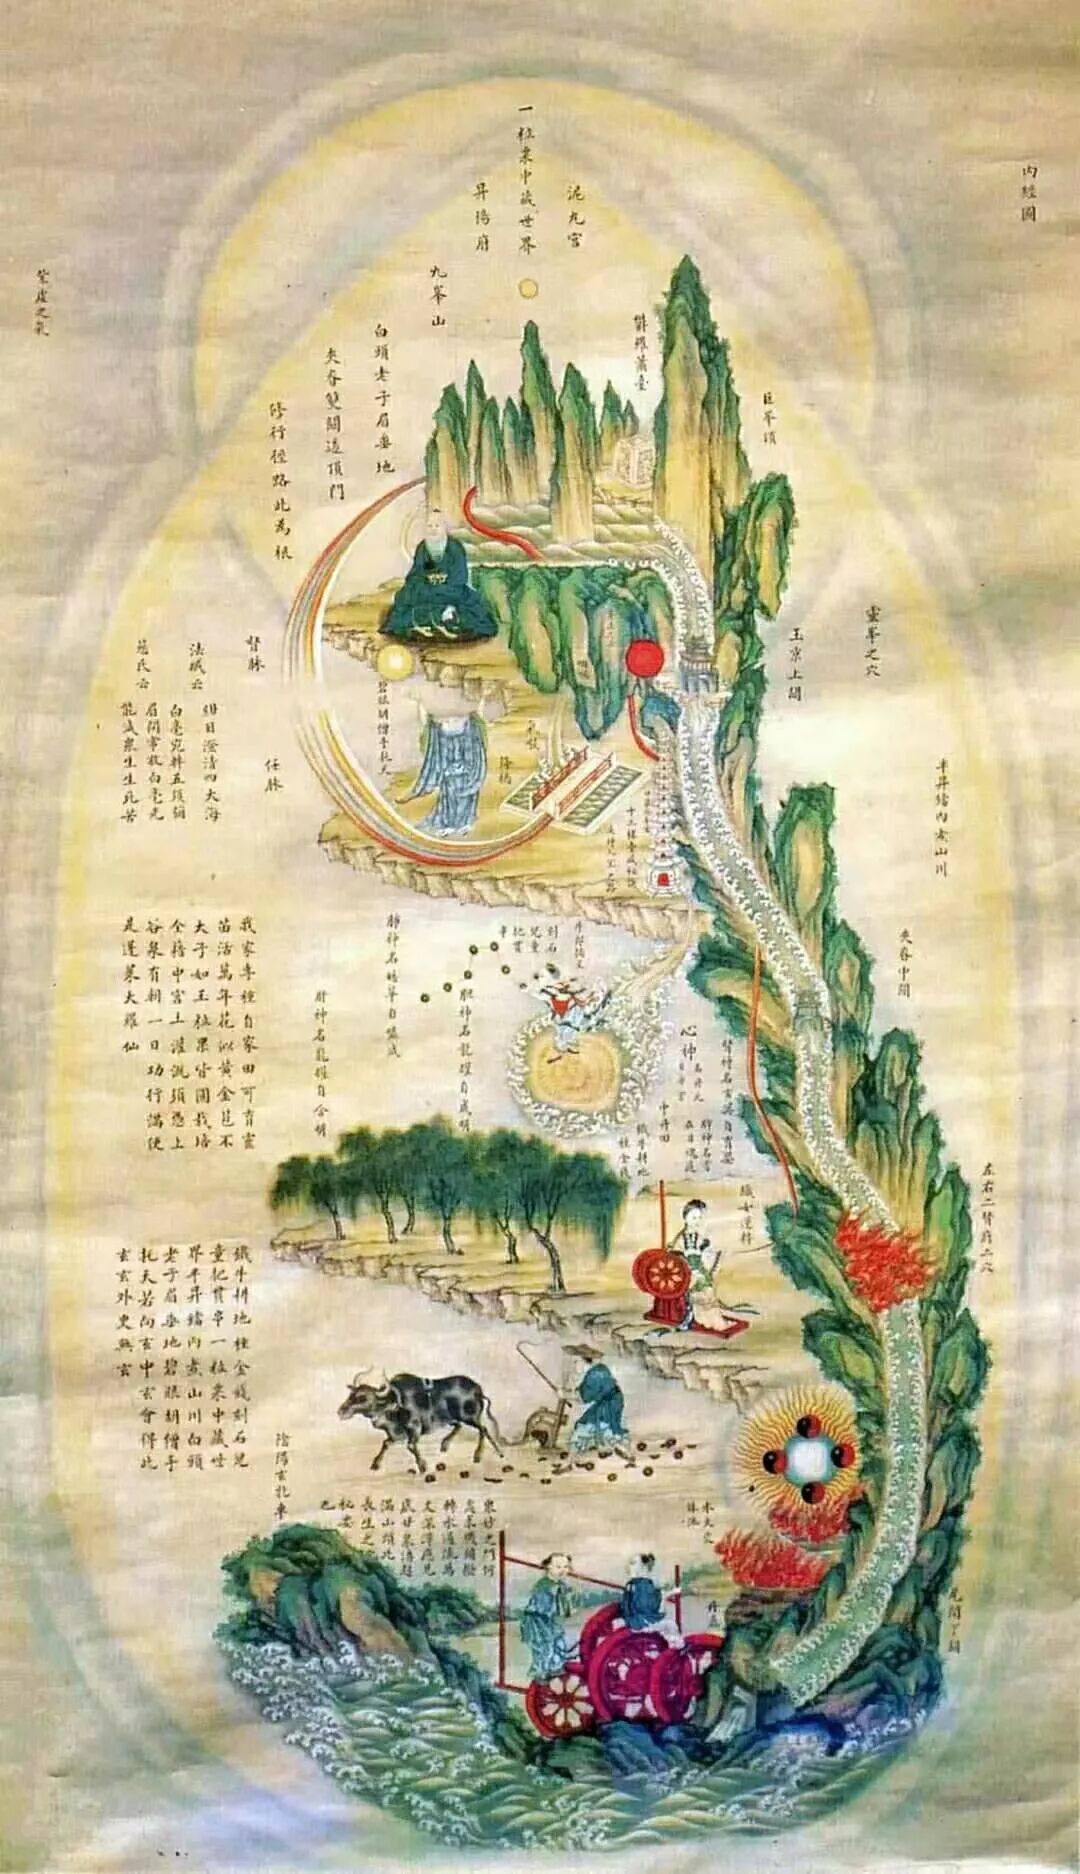 內經圖
泥丸宮
一粒粟中藏世界
昇陽府
九峯山
白頭老子眉垂地
夾脊雙關透頂門
修行徑路此為根
鬱羅蕭臺
巨峯頂
靈峯之穴
玉京上關
督脉
任脉
法藏云
紺目澄清四大海
白毫宛轉五須彌
慈氏云
眉間常放白毫光
能滅衆生生死苦
碧眼胡僧手托天
降橋
十二樓臺藏秘訣
半昇鐺內煮山川
夾脊中關
牛郎橋星
刻石
兒童
把貫
串
肺神名皓華自虛成
膽神名龍耀自威明
肝神名龍烟自含明
心神
腎神名玄冥自育嬰
脾神名常在自魂庭
中丹田
鐵牛耕地
種金錢
織女運轉
左右二腎府二穴
我家專種自家田可育靈
苗活萬年花似黃金苞不
大子如玉粒果皆圓栽培
全藉中宮土灌溉須憑上
谷泉有朝一日功行滿便
是蓬萊大羅仙
鐵牛耕地種金錢刻石兒
童把貫串一粒粟中藏世
界半昇鐺內煮山川白頭
老子眉垂地碧眼胡僧手
托天若向玄中玄會得此
玄玄外更無玄
陰陽玄扎車
尾閭下關